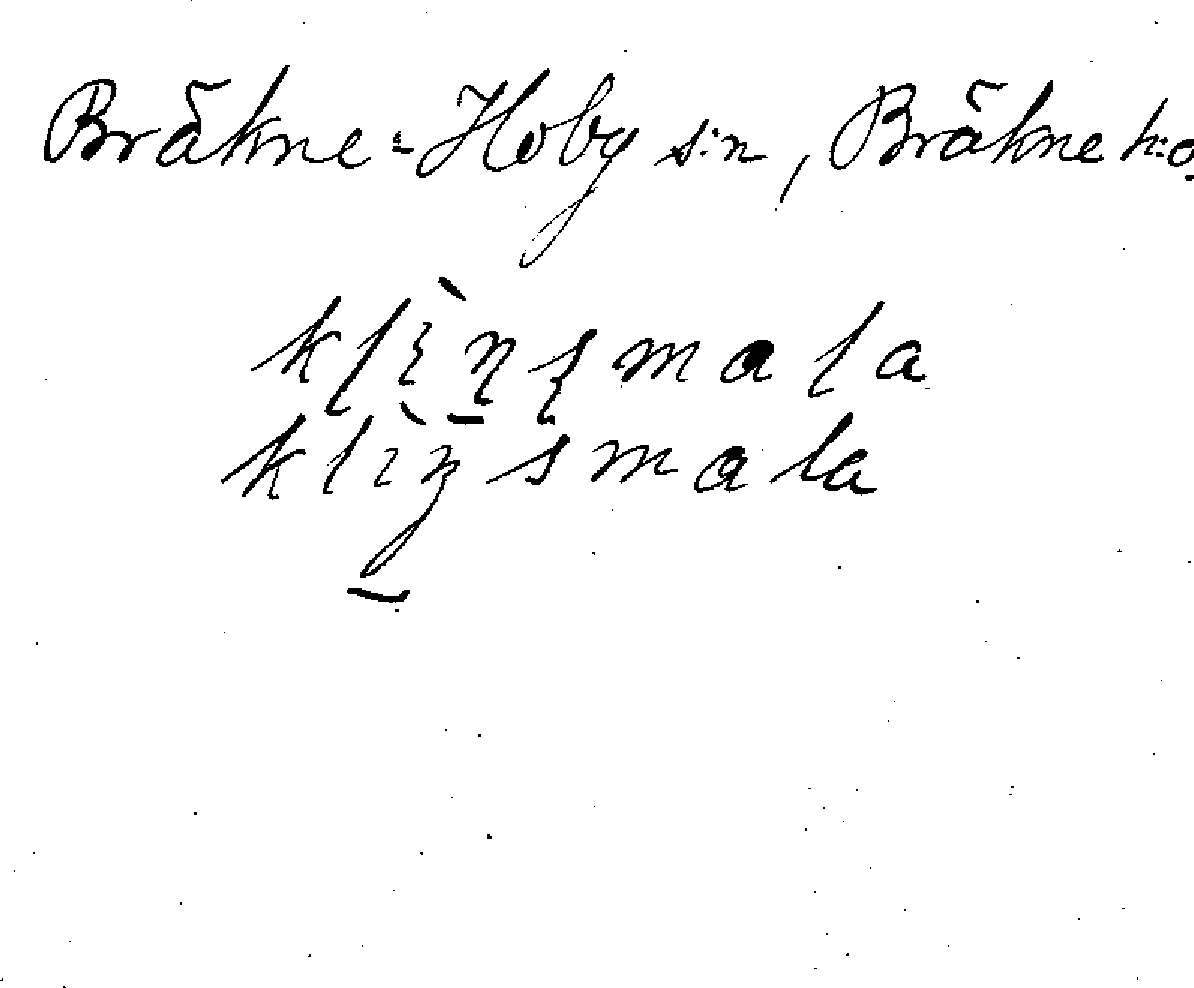 Bräkne-Hoby s:n, Bräkne h:d
klingsmala
klingsmala